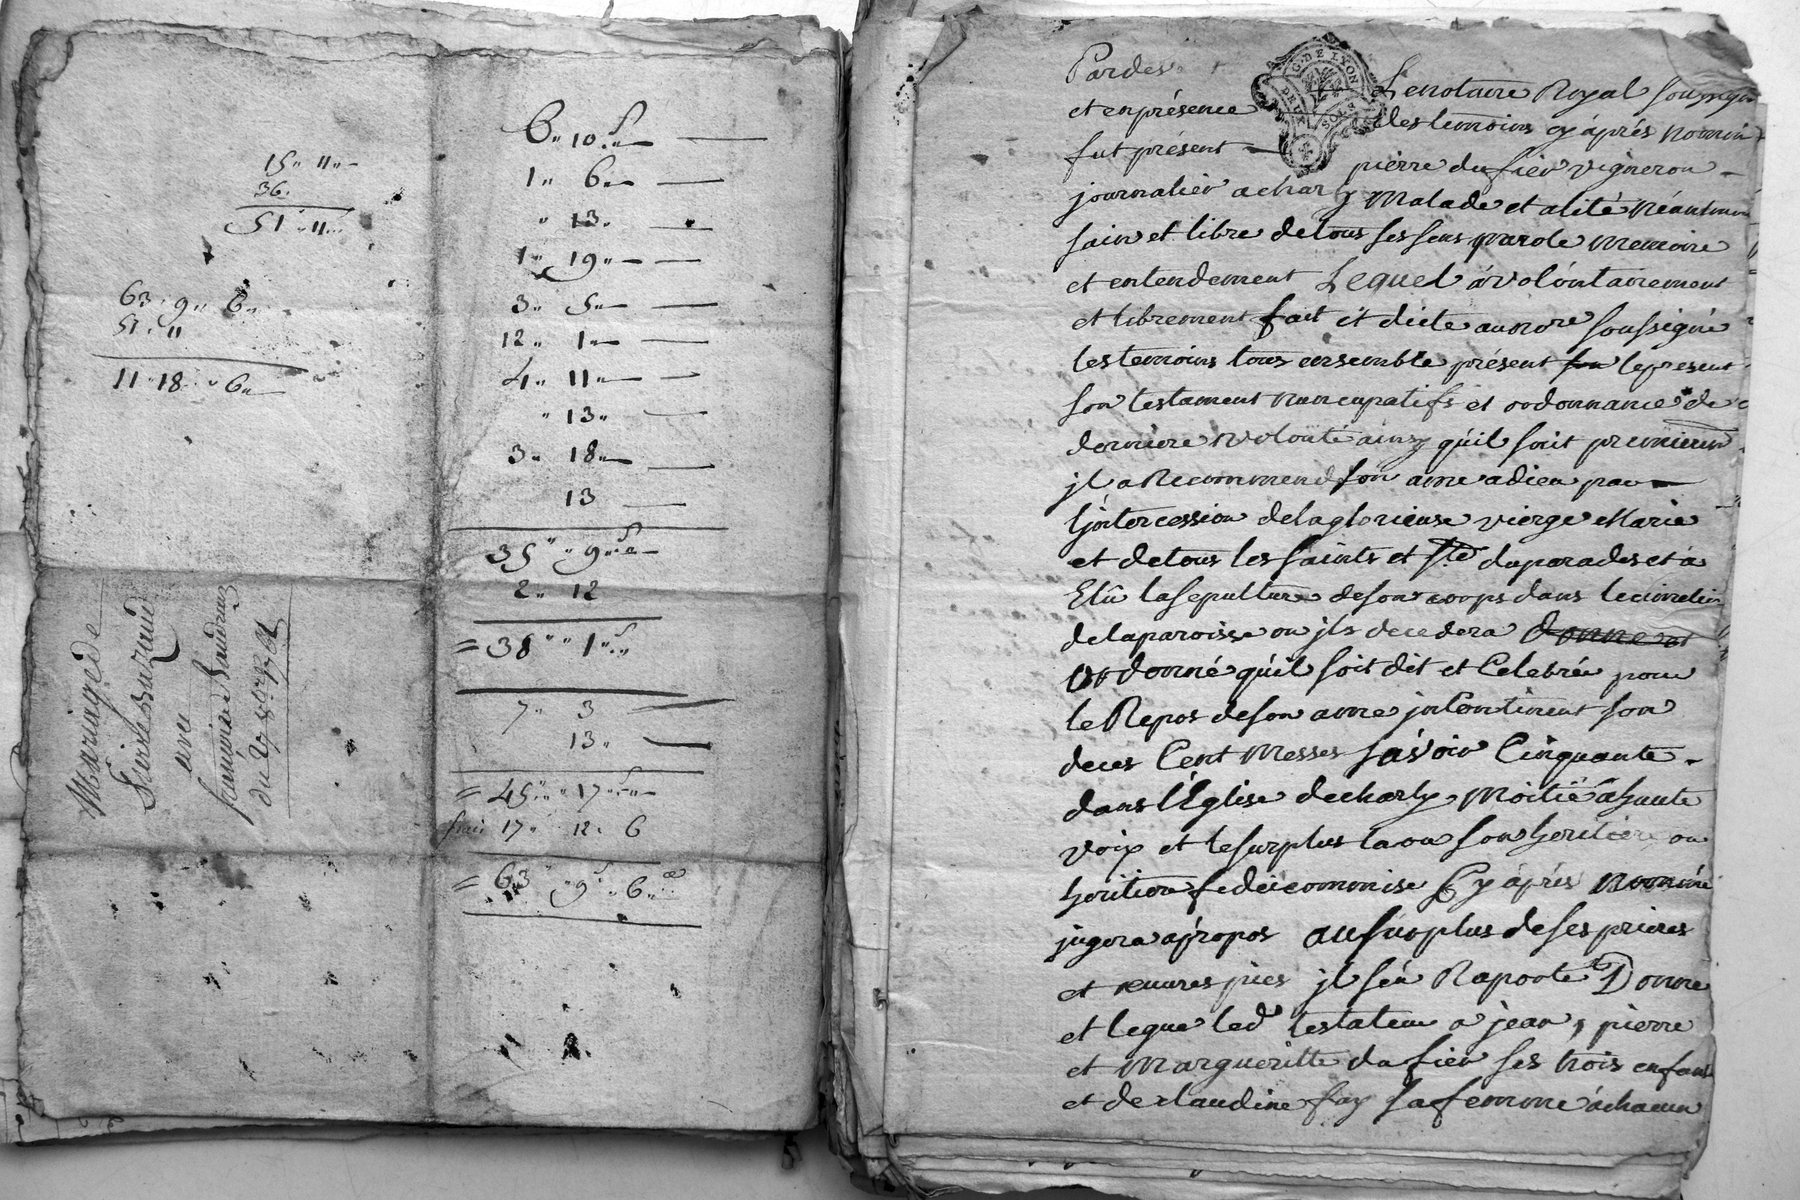 15" 11"
36.
51" 11"
63" 9" 6"
51" 11
11" 18" 6"
6" 10 s
1" 6"
" 13"
1" 19"
3" 5"
12" 1"
4" 11"
" 13"
3" 18"
13
35" 9 s
2" 12
= 38" 1 s
7" 3
13"
= 45" 17 s
frais 17" 12" 6
= 63" 9 s 6 d
Mariage de
avec
du
Pardev
G. DE LYON
DEUX SOLS
Le notaire Royal soussigné
et en présence
des temoins cy áprés nommé
fut présent
pierre dufier vigneron
journalier a charly Malade et alité néantmoins
sain et libre de tous ses sens parole memoire
et entendement Lequel á volontairement
et librement fait et dicté au nore soussigné
les temoins tous ensemble présent le present
son testament nuncupatifs et ordonnance de
derniere volonté ainsy qu'il suit premierem
jl a Recommend son ame a dieu par
L'jntercession de la glorieuse vierge Marie
et de tous les saints et ste du parades et á
Elû la sepulture de son corps dans le cimetier
de la paroisse ou jls decedera donne et
Ordonné qu'il soit dit et Celebrée pour
le Repos de son ame jncontinent son
deces Cent Messes sávoir Cinquante
dans l'Eglise de charly, Moitié á haute
voix et le surplus la ou son heritier ou
heritiere fedeicommise Cy áprés nommé
jugera a propos au surplus de ses prieres
et œuvres pies jl s'en Raporte Donne
et legue led testateur a jean, pierre
et Margueritte dufier ses trois enfans
et de claudine fay sa femme á chacun